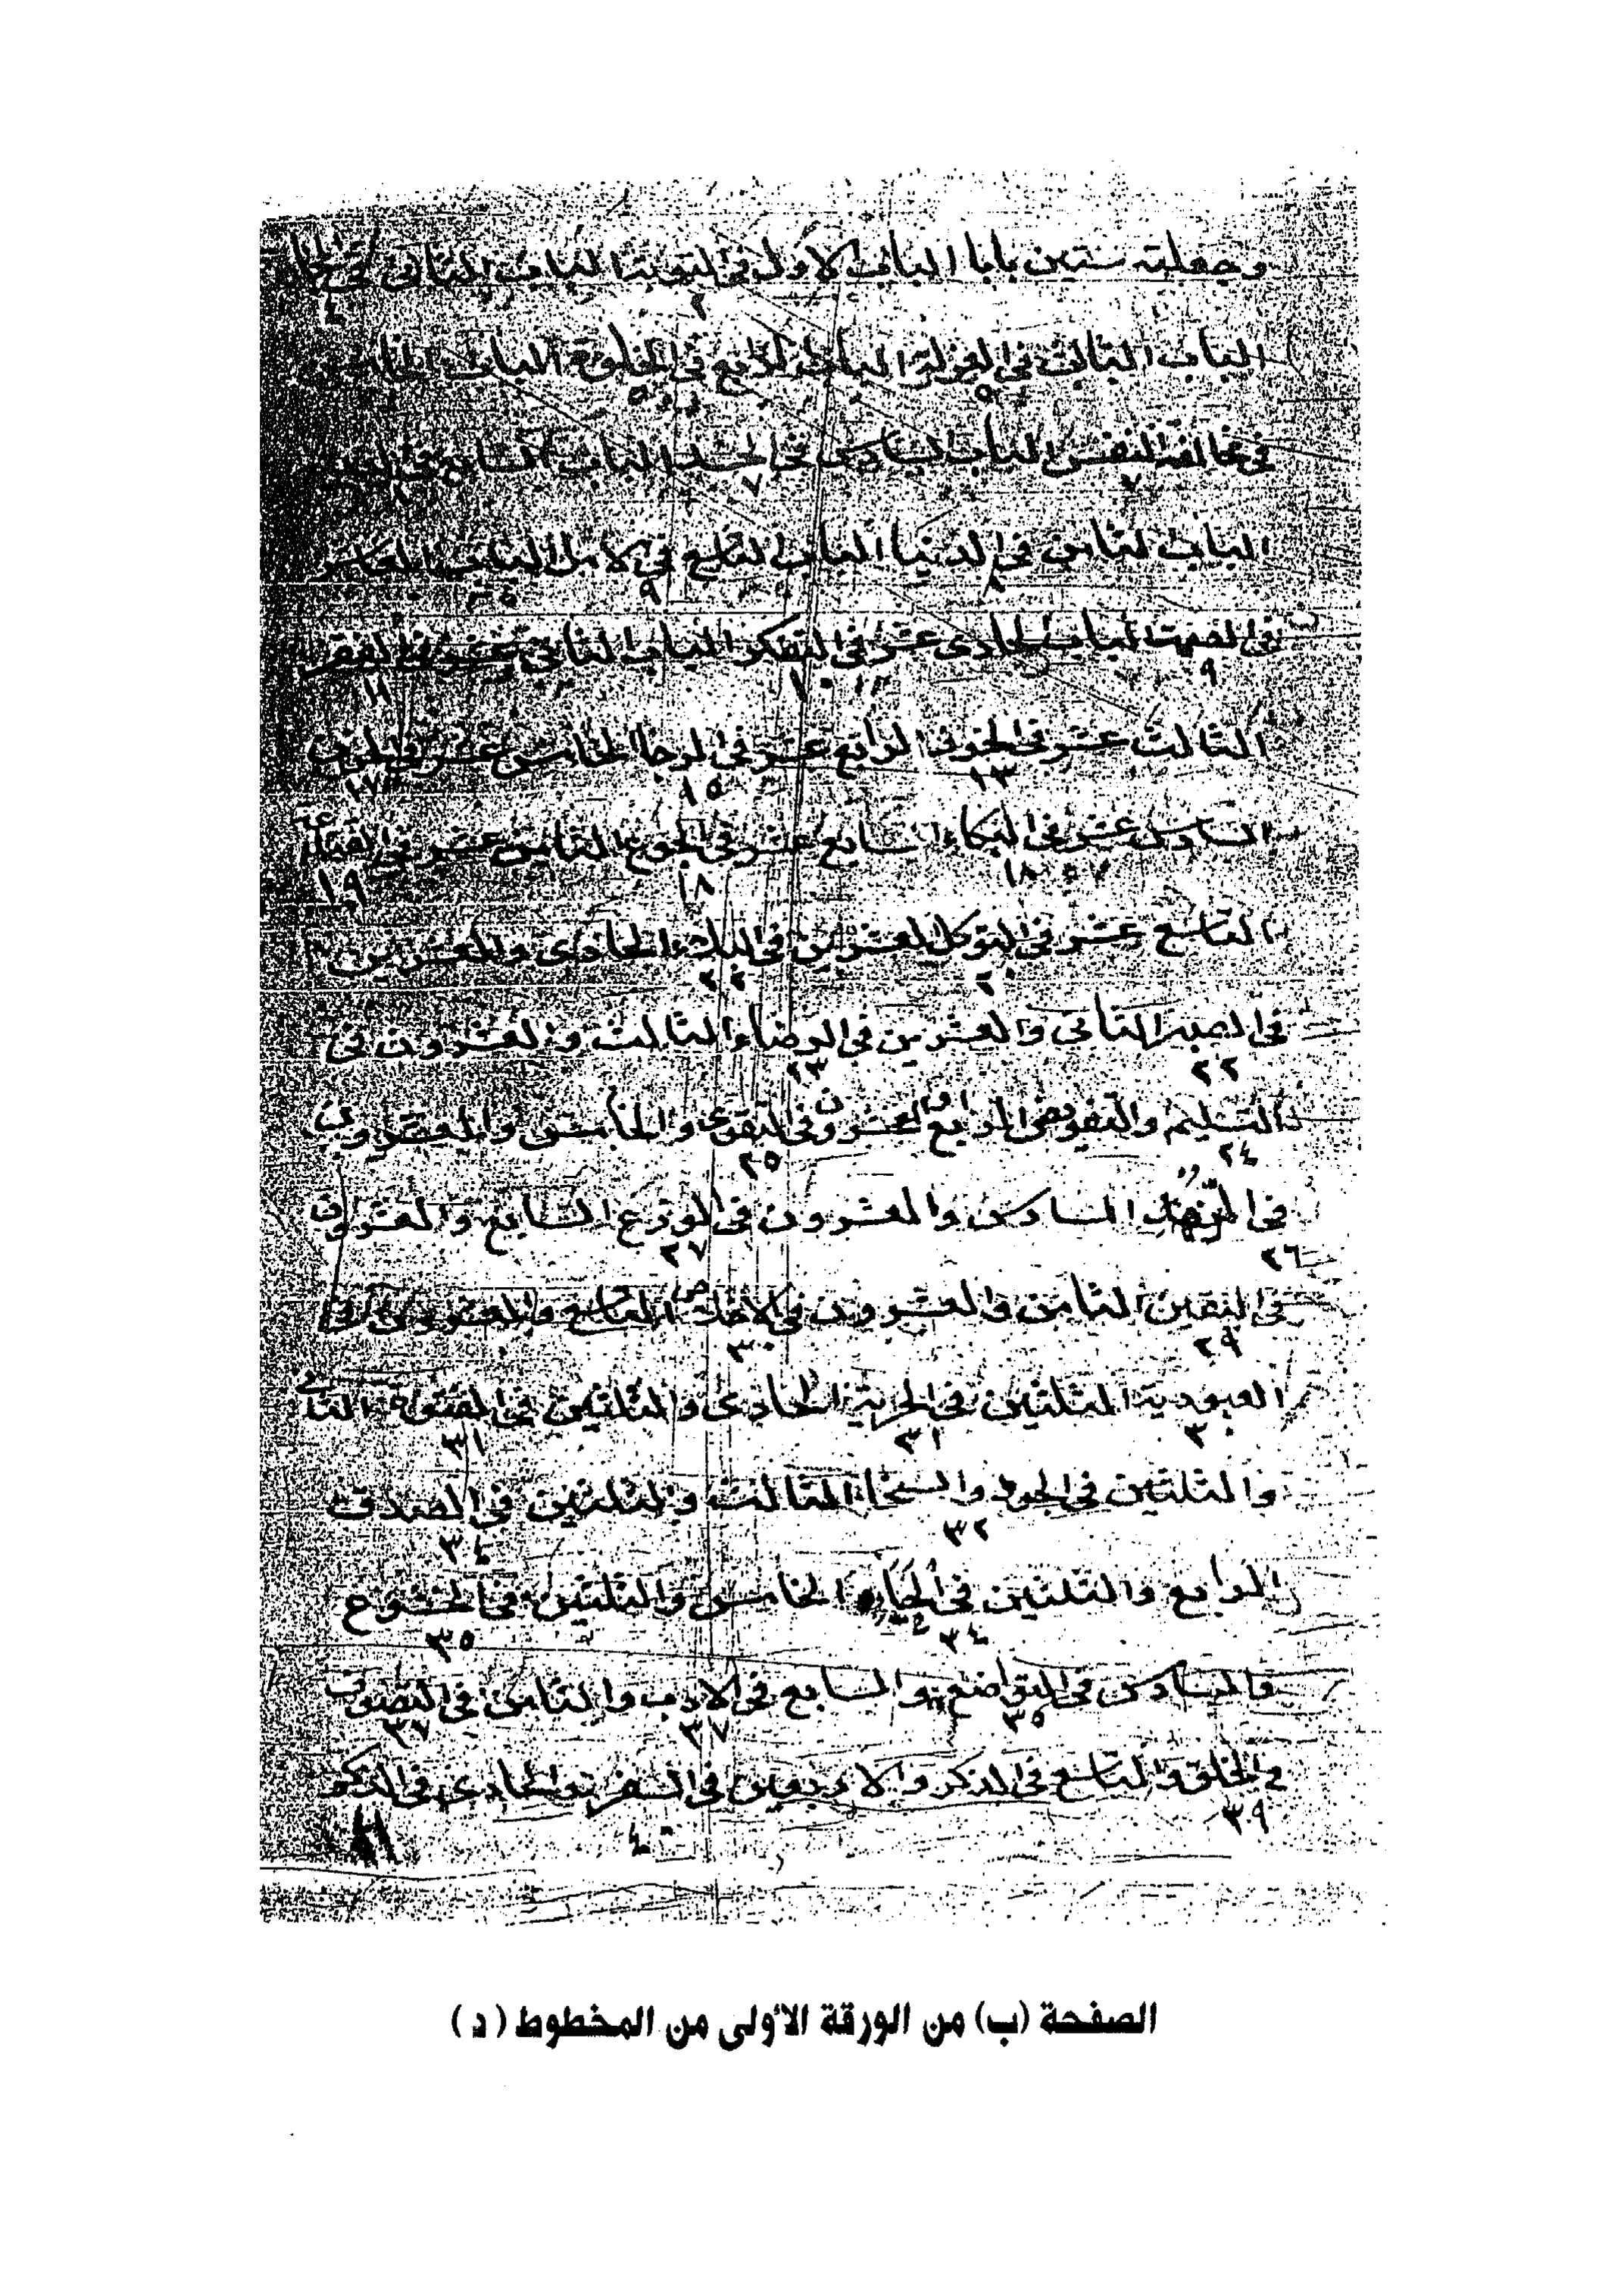 وجعلته ستين بابا الباب الاول في التوبة الباب الثاني في
٢ ٤
الباب الثالث في العزلة الباب الرابع في الخلوة الباب الخامس
في مخالفة النفس الباب السادس في الحسد الباب السابع في
٧ ٨
الباب الثامن في الدنيا الباب التاسع في الامل الباب العاشر
٨ ٩
في الصمت الباب الحادى عشر في التفكر الباب الثاني عشر في الفقر
٩ ١٠ ١١
الثالث عشر في الخوف الرابع عشر في الرجا الخامس عشر في الحزن
١٣ ١٥ ١٧
السادس عشر في البكاء السابع عشر في الجوع الثامن عشر في القناعة
١٨ ١٩
التاسع عشر في التوكل العشرين في البلاء الحادى والعشرين
٢٠ ٢٢
في الصبر الثاني والعشرين في الرضاء الثالث والعشرون في
٢٢ ٢٣
التسليم والتفويض الرابع والعشرون في التقوى والخامس والعشرون
٢٤ ٢٥
في الزهد السادس والعشرون في الورع السابع والعشرون
٢٦ ٢٧
في اليقين الثامن والعشرون في الاخلاص التاسع والعشرون في
٢٩ ٣٠
العبودية الثلثين في الحرية الحادى والثلثين في الفتوة الثاني
٣٠ ٣١ ٣١
والثلثين في الجود والسخا الثالث والثلثين في الصدق
٣٢ ٣٤
الرابع والثلثين في الحياء الخامس والثلثين في الخشوع
٣٤ ٣٥
والسادس في التواضع والسابع في الادب والثامن في التصوف
٣٥ ٣٧ ٣٧
في الخلق والتاسع في الذكر والاربعين في السفر والحادى في
٣٩ ٤٠ ٤١
الصفحة (ب) من الورقة الأولى من المخطوط (د)